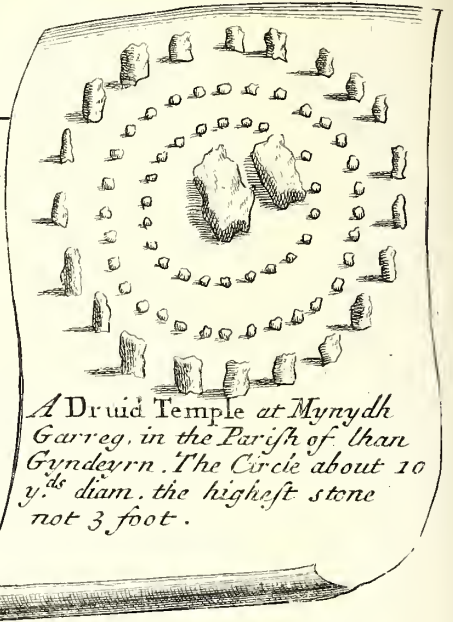 A Druid Temple at Mynydh
Garreg, in the Pariſh of lhan
Gyndeyrn. The Circle about 10
y.ds diam. the higheſt stone
not 3 foot.